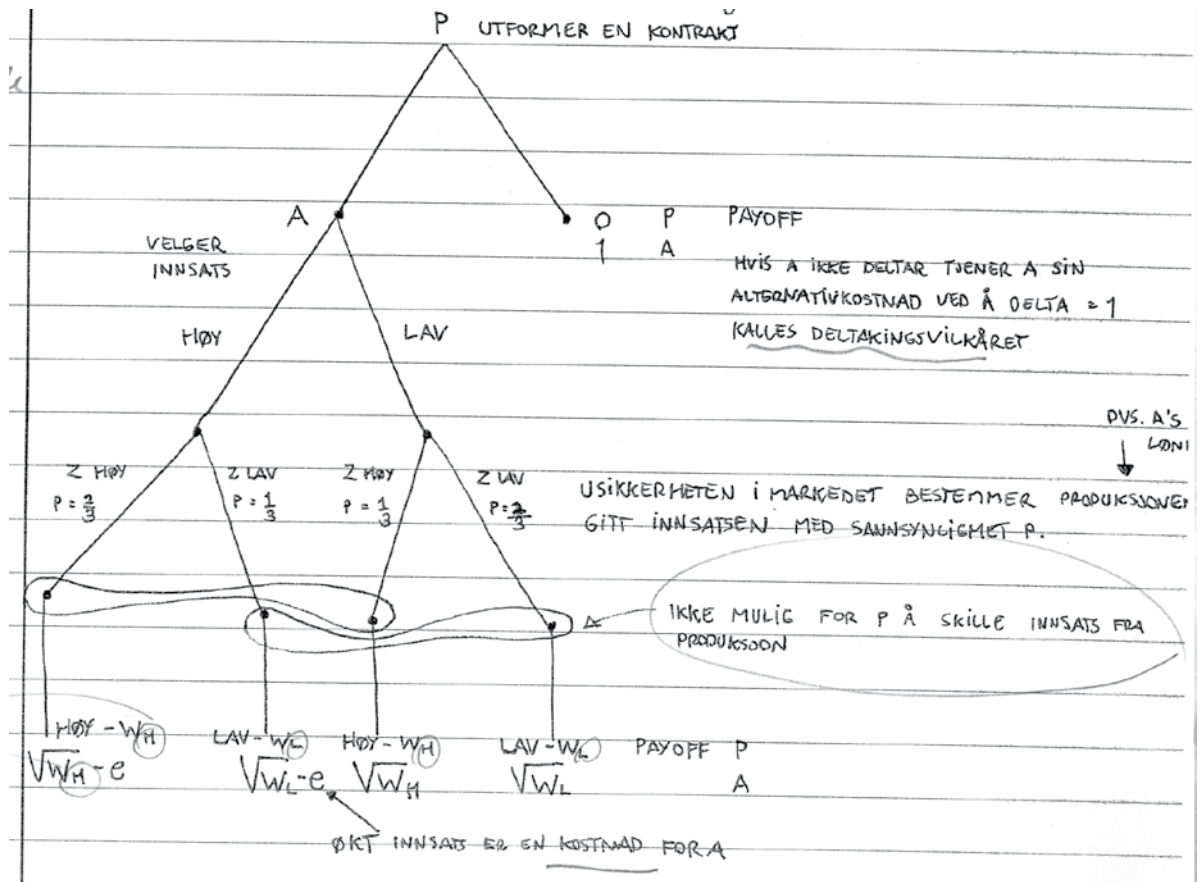 P UTFORMER EN KONTRAKT
A
O P PAYOFF
1 A
VELGER
INNSATS
HVIS A IKKE DELTAR TJENER A SIN
ALTERNATIVKOSTNAD VED Å DELTA = 1
KALLES DELTAKINGSVILKÅRET
HØY LAV
DVS. A'S
LØNN
Z HØY Z LAV Z HØY Z LAV
P = 2/3 P = 1/3 P = 1/3 P = 2/3
USIKKERHETEN I MARKEDET BESTEMMER PRODUKSJONEN
GITT INNSATSEN MED SANNSYNLIGHET P.
IKKE MULIG FOR P Å SKILLE INNSATS FRA
PRODUKSJON
HØY - W_H LAV - W_L HØY - W_H LAV - W_L PAYOFF P
√W_H - e √W_L - e √W_H √W_L A
ØKT INNSATS ER EN KOSTNAD FOR A